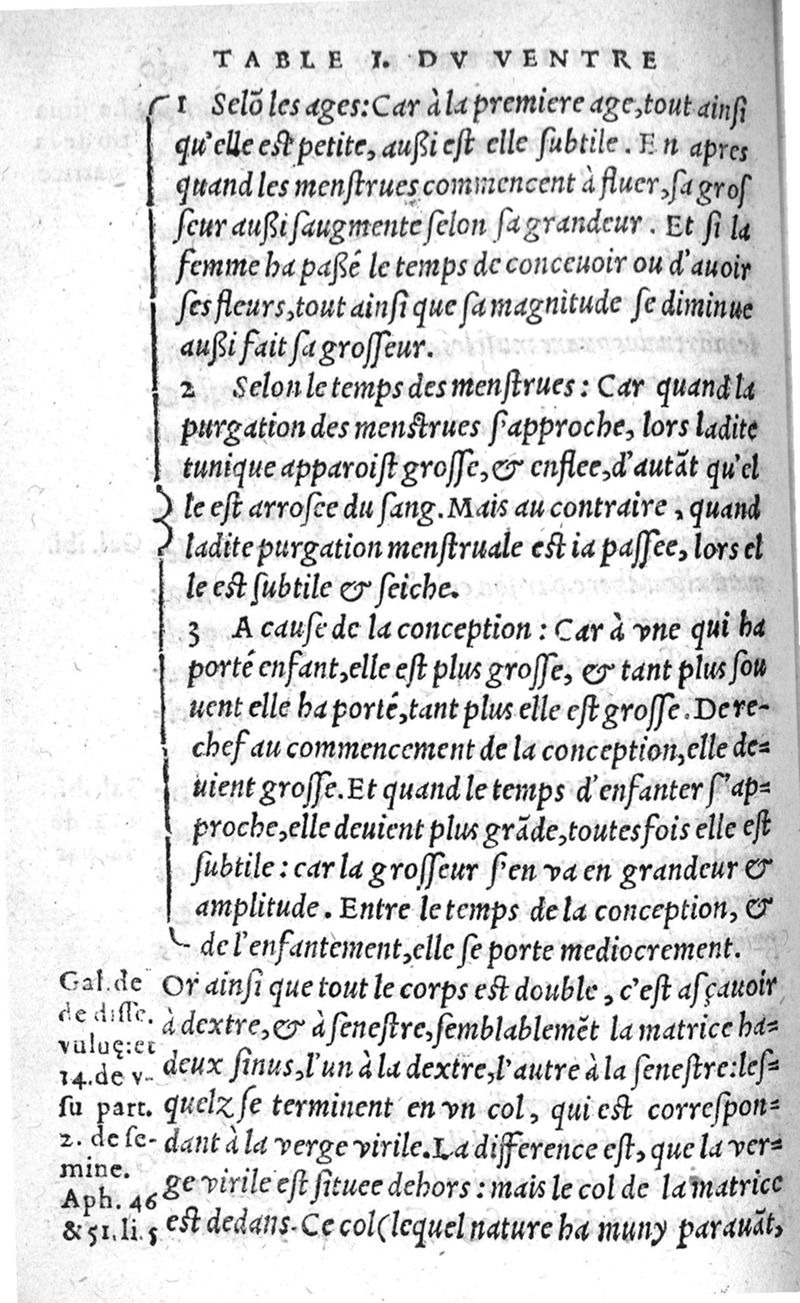 TABLE I. DV VENTRE
1 Selõ les ages: Car à la premiere age, tout ainſi
qu'elle eſt petite, außi eſt elle ſubtile. En apres
quand les menſtrues commencent à fluer, ſa groſ
ſeur außi ſaugmente ſelon ſa grandeur. Et ſi la
femme ha paßé le temps de conceuoir ou d'auoir
ſes fleurs, tout ainſi que ſa magnitude ſe diminue
außi fait ſa groſſeur.
2 Selon le temps des menſtrues: Car quand la
purgation des menſtrues ſ'approche, lors ladite
tunique apparoiſt groſſe, & enflee, d'autãt qu'el
le eſt arroſee du ſang. Mais au contraire, quand
ladite purgation menſtruale eſt ia paſſee, lors el
le eſt ſubtile & ſeiche.
3 A cauſe de la conception: Car à vne qui ha
porté enfant, elle eſt plus groſſe, & tant plus ſou
uent elle ha porté, tant plus elle eſt groſſe. De re-
chef au commencement de la conception, elle de-
uient groſſe. Et quand le temps d'enfanter ſ'ap-
proche, elle deuient plus grãde, toutesfois elle eſt
ſubtile: car la groſſeur ſ'en va en grandeur &
amplitude. Entre le temps de la conception, &
de l'enfantement, elle ſe porte mediocrement.
Or ainſi que tout le corps eſt double, c'eſt aſçauoir
à dextre, & à ſeneſtre, ſemblablemẽt la matrice ha-
deux ſinus, l'un à la dextre, l'autre à la ſeneſtre: leſ-
quelz ſe terminent en vn col, qui eſt correſpon-
dant à la verge virile. La difference eſt, que la ver-
ge virile eſt ſituee dehors: mais le col de la matrice
eſt dedans. Ce col (lequel nature ha muny parauãt,
Gal. de
de diſſe.
vuluę: et
14. de v-
ſu part.
2. de ſe-
mine.
Aph. 46
& 51. li. 5